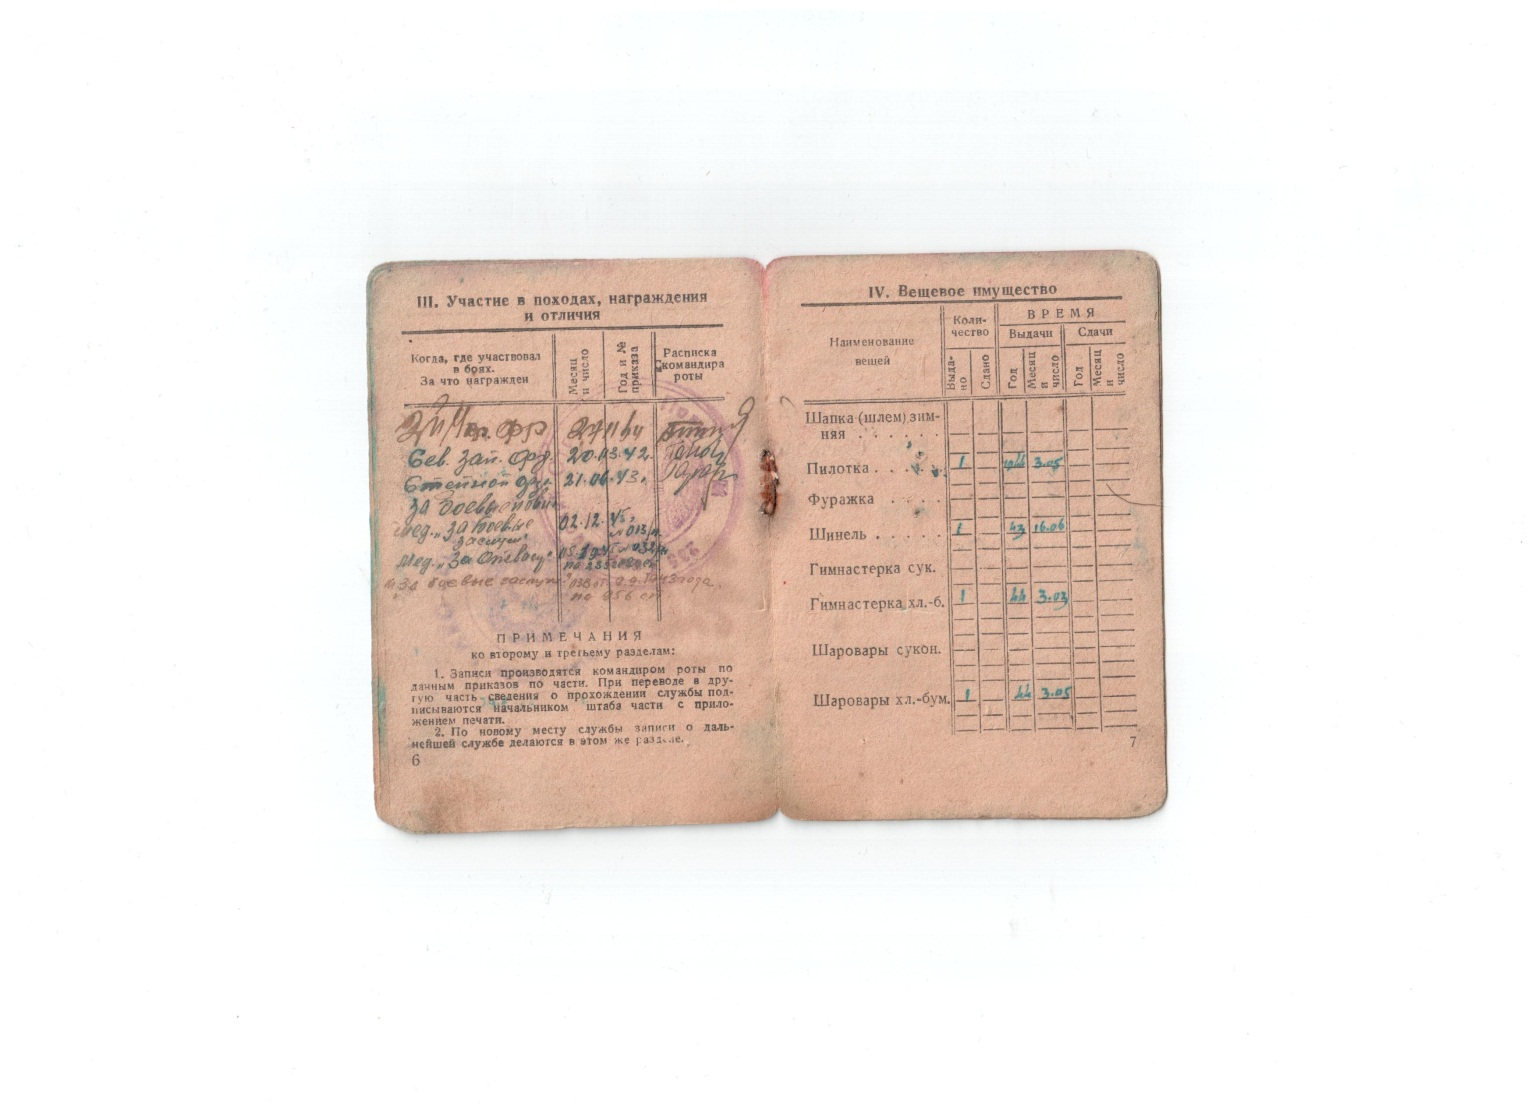 III. Участие в походах, награждения
и отличия
Когда, где участвовал
в боях.
За что награжден
Месяц
и число
Год и №
приказа
Расписка
командира
роты
фр
Сев. Зап. фр. 20.03.42.
Степной фр. 21.06.43.
За боевые
мед. „За боевые
заслуги" 02.12.
мед. „За Отвагу"
За боевые заслуги
ПРИМЕЧАНИЯ
ко второму и третьему разделам:
1. Записи производятся командиром роты по
данным приказов по части. При переводе в дру-
гую часть сведения о прохождении службы под-
писываются начальником штаба части с прило-
жением печати.
2. По новому месту службы записи о даль-
нейшей службе делаются в этом же разделе.
6
IV. Вещевое имущество
Наименование
вещей
Коли-
чество
ВРЕМЯ
Выдачи
Сдачи
Выда-
но
Сдано
Год
Месяц
и
число
Год
Месяц
и
число
Шапка (шлем) зим-
няя . . . . . .
Пилотка . . . . 1 3.05
Фуражка . . . .
Шинель . . . . . 1 43 16.06
Гимнастерка сук.
Гимнастерка хл.-б. 1 44 3.03
Шаровары сукон.
Шаровары хл.-бум. 1 44 3.05
7